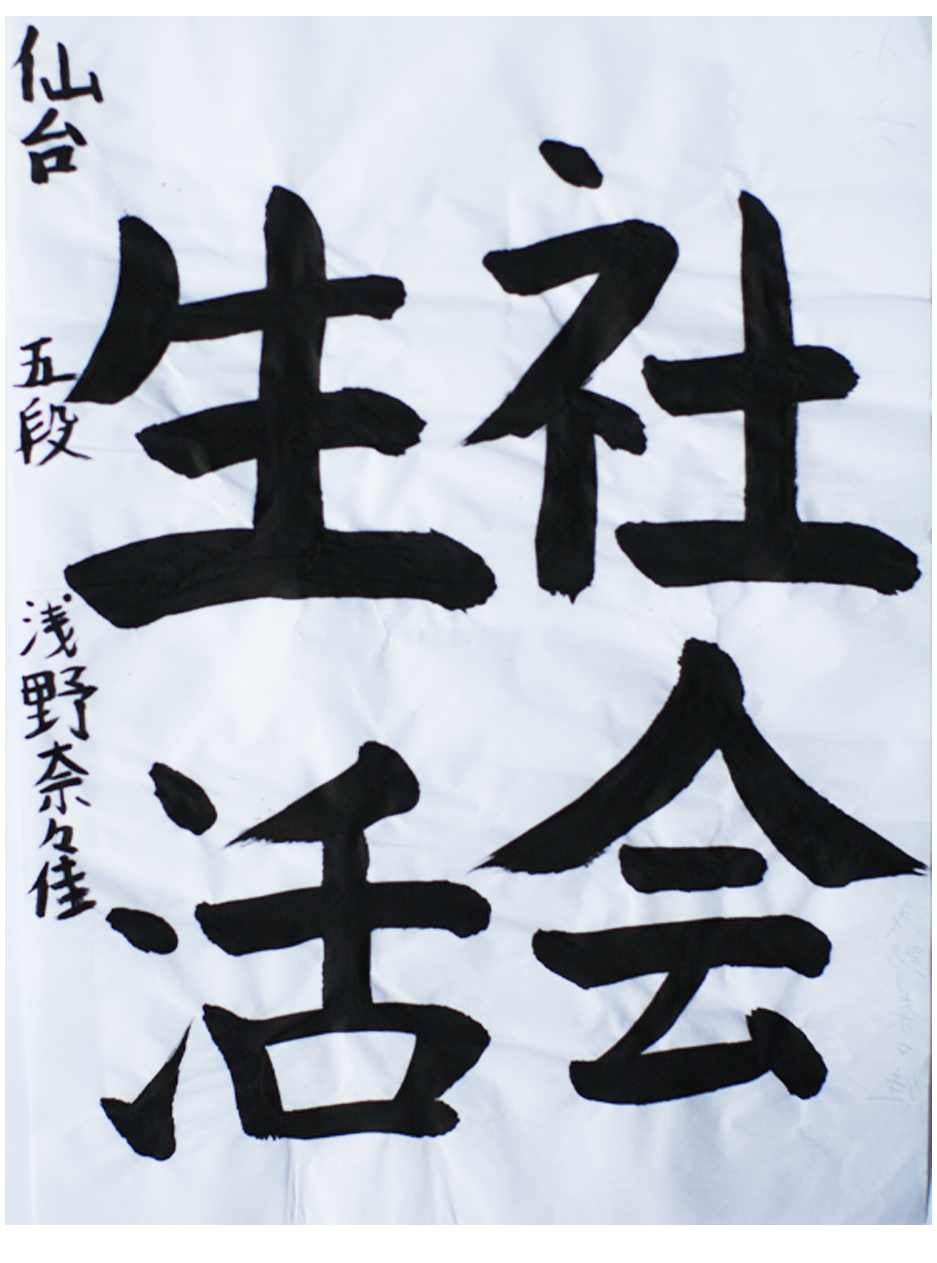 社会
生活
仙台 五段 浅野奈々佳